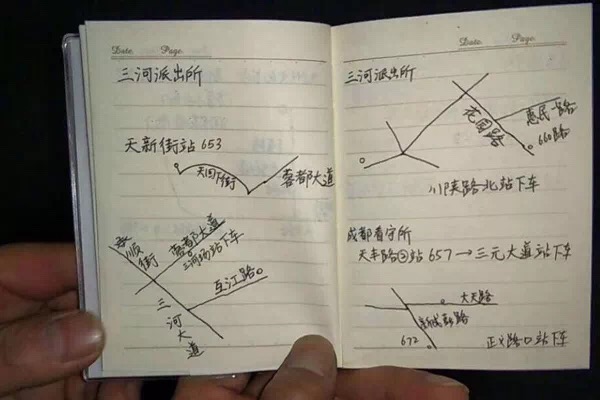 Date. Page.
三河派出所
天新街站 653
天回下街
蓉都大道
蓉都大道
三河场站下车
顺街
互江路
三河大道
Date. Page.
三河派出所
花园路
惠民一路
660路
川陕路北站下车
成都看守所
天丰路②站 657→三元大道站下车
大天路
672
正义路口站下车